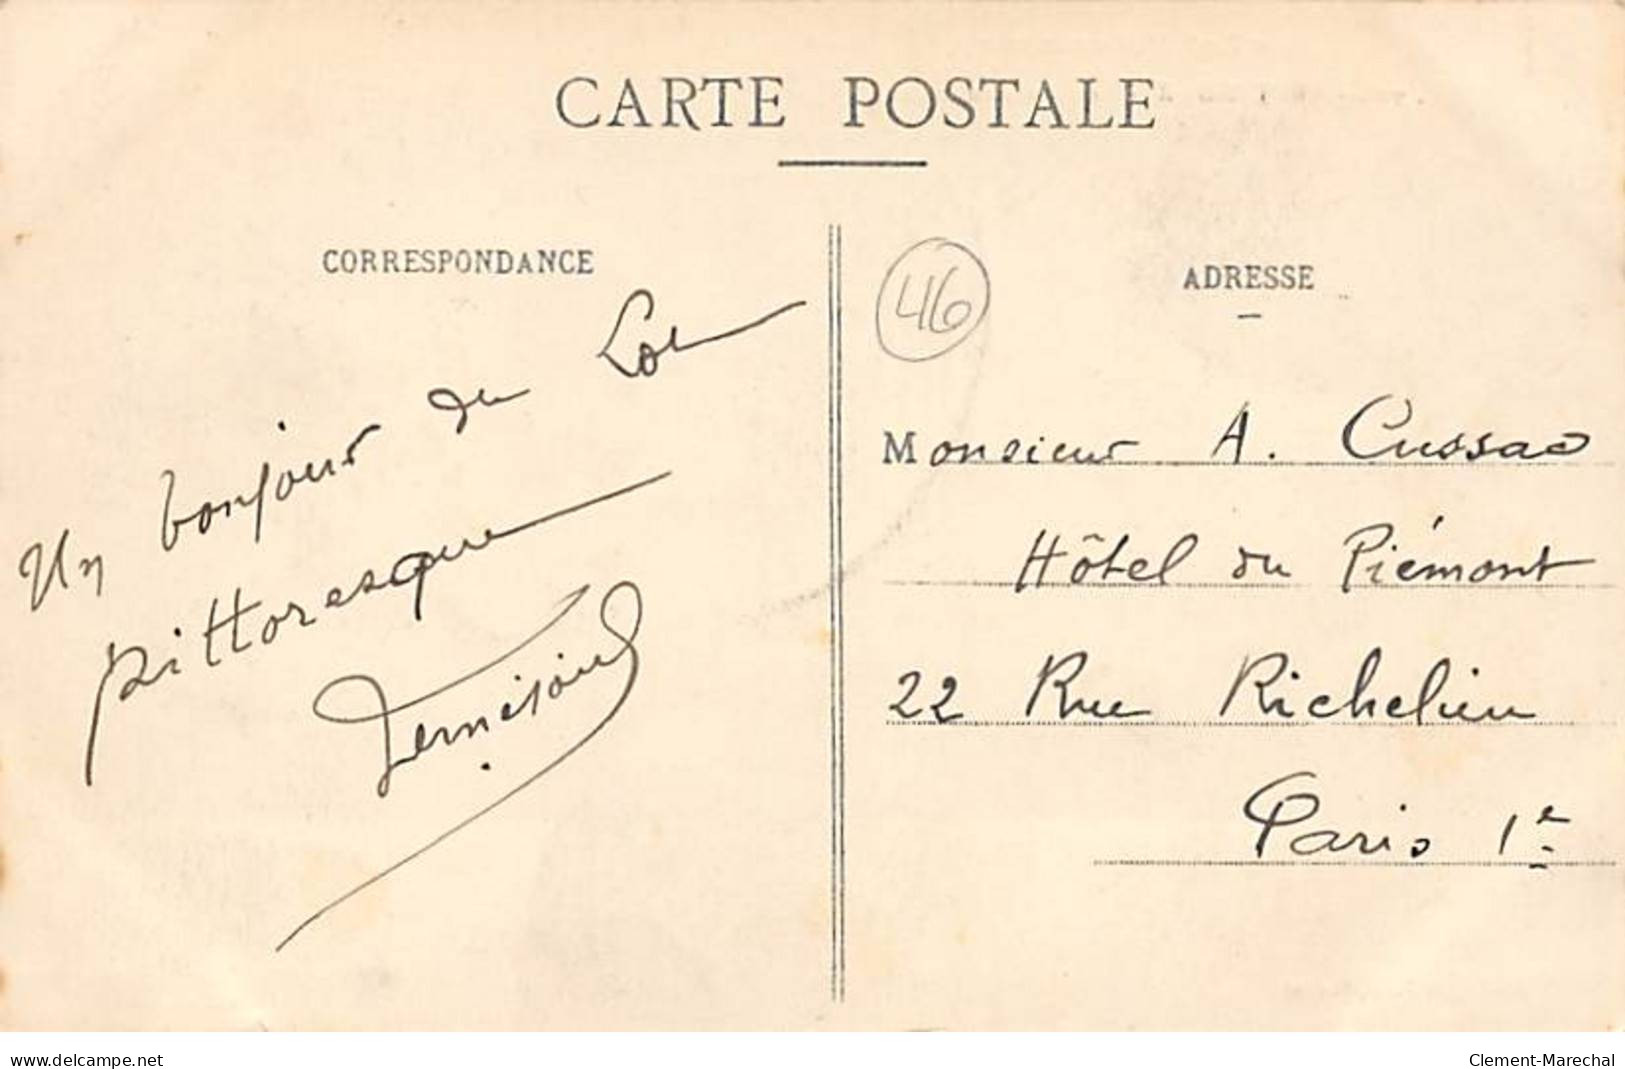 CARTE POSTALE
CORRESPONDANCE
Un bonjour du Lot
pittoresque
46
ADRESSE
Monsieur A. Cussac
Hôtel du Piémont
22 Rue Richelieu
Paris 1e
www.delcampe.net
Clement-Marechal